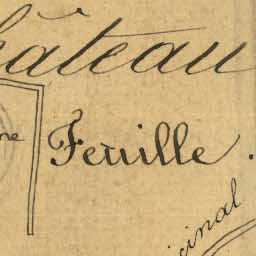 château
ne
Feuille.
cinal